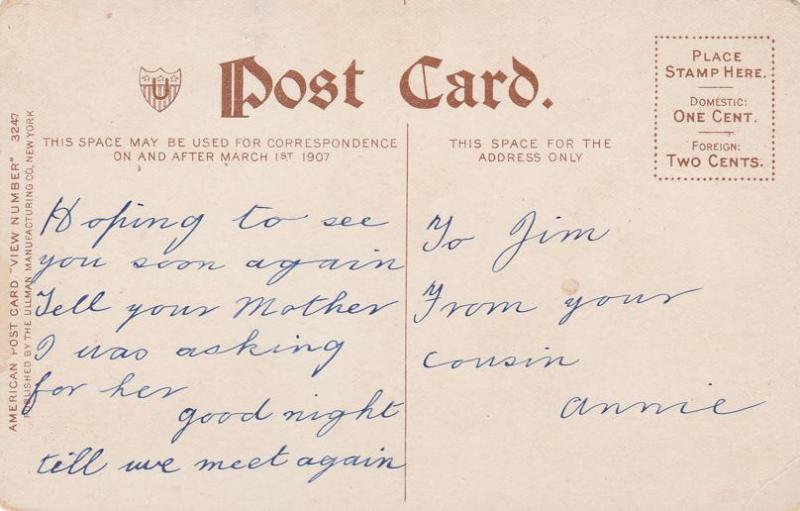 Post Card.
U
PLACE
STAMP HERE.
DOMESTIC:
ONE CENT.
FOREIGN:
TWO CENTS.
THIS SPACE MAY BE USED FOR CORRESPONDENCE
ON AND AFTER MARCH 1ST 1907
THIS SPACE FOR THE
ADDRESS ONLY
AMERICAN POST CARD "VIEW NUMBER" 3247
PUBLISHED BY THE ULLMAN MANUFACTURING CO, NEW YORK
Hoping to see
you soon again
Tell your Mother
I was asking
for her
good night
till we meet again
To Jim
From your
cousin
Annie